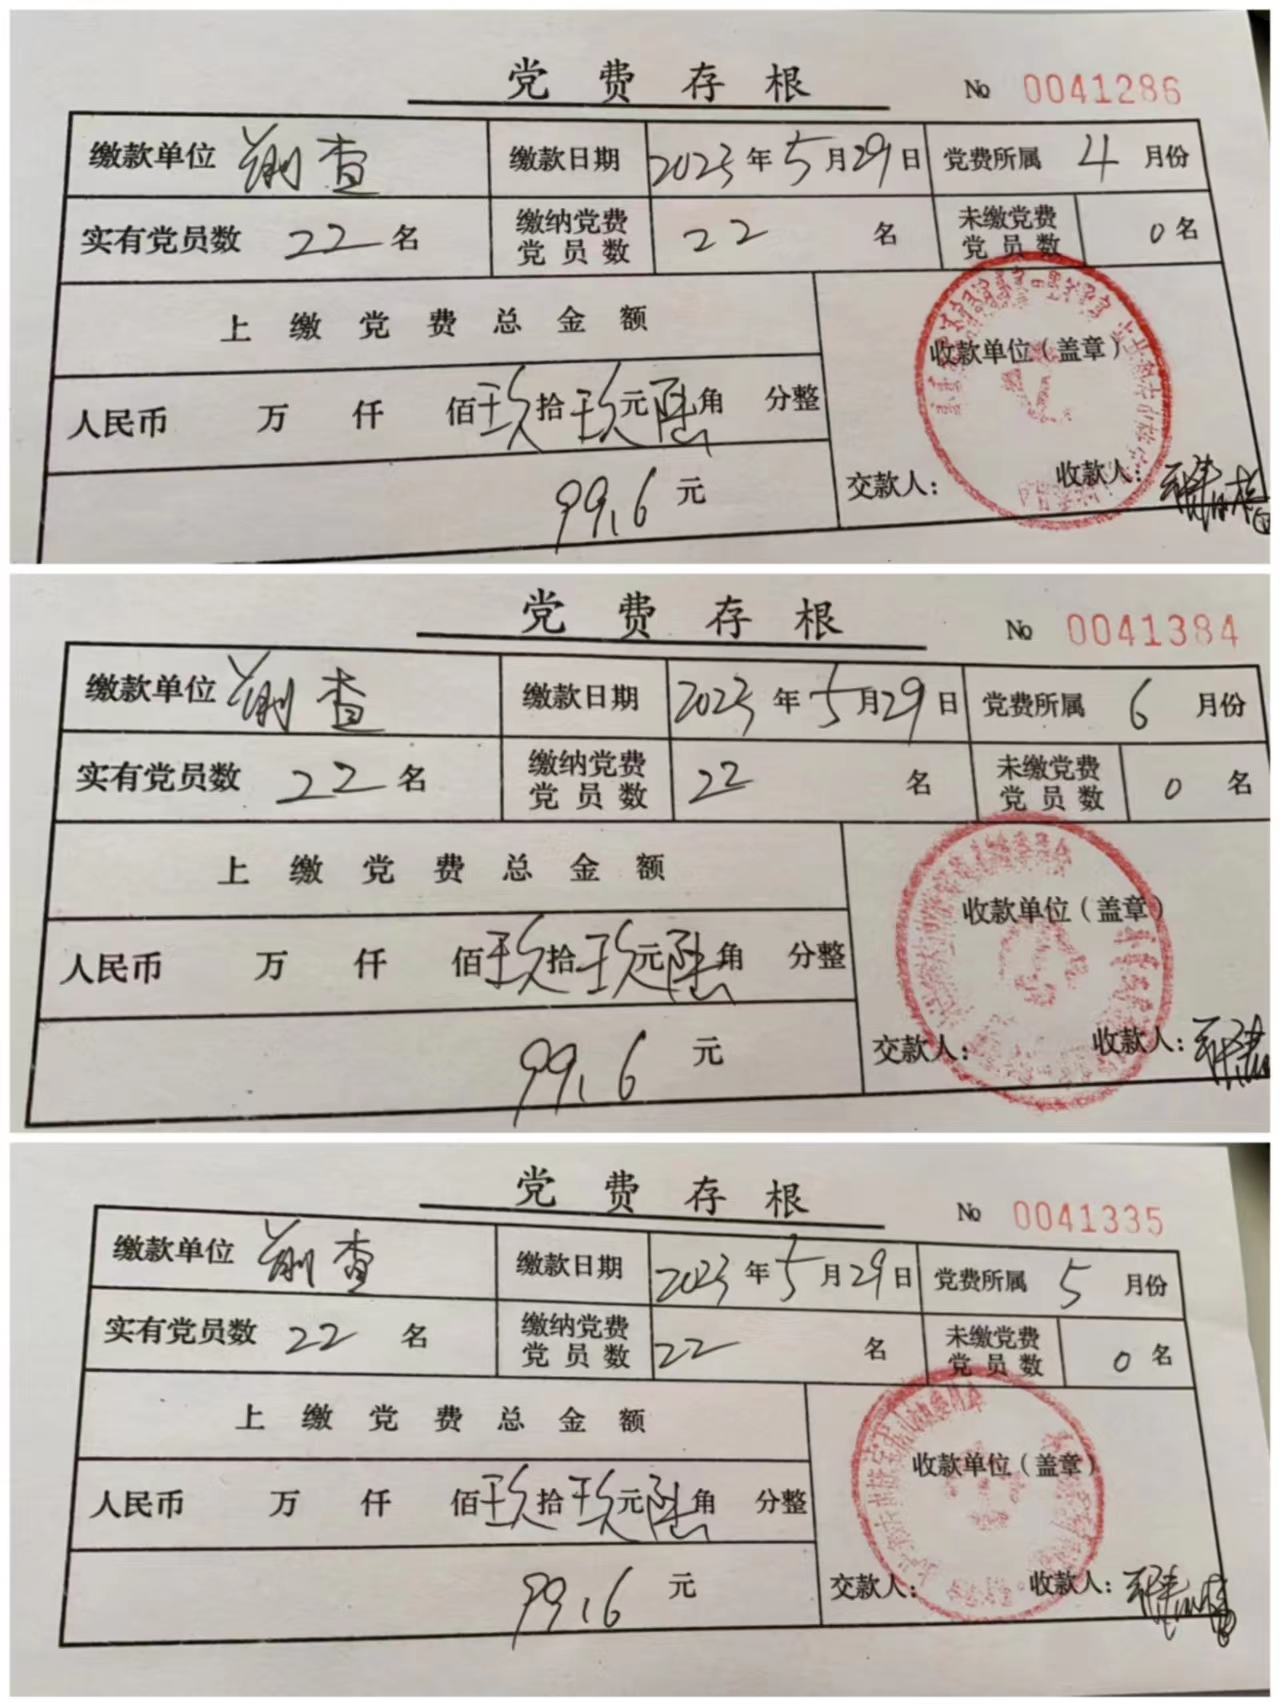 党费存根 No 0041286
缴款单位 前查 缴款日期 2023年5月29日 党费所属 4 月份
实有党员数 22名 缴纳党费党员数 22 名 未缴党费党员数 0名
上缴党费总金额
收款单位（盖章）
人民币 万 仟 佰玖拾玖元陆角 分整
99.6 元
交款人： 收款人：
党费存根 No 0041384
缴款单位 前查 缴款日期 2023年5月29日 党费所属 6 月份
实有党员数 22名 缴纳党费党员数 22 名 未缴党费党员数 0 名
上缴党费总金额
收款单位（盖章）
人民币 万 仟 佰玖拾玖元陆角 分整
99.6 元
交款人： 收款人：
党费存根 No 0041335
缴款单位 前查 缴款日期 2023年5月29日 党费所属 5 月份
实有党员数 22 名 缴纳党费党员数 22 名 未缴党费党员数 0名
上缴党费总金额
收款单位（盖章）
人民币 万 仟 佰玖拾玖元陆角 分整
99.6 元
交款人： 收款人：